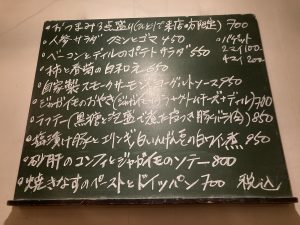 おつまみ3点盛り(ひとりで来店の方限定) 700
人参サラダ クミンとゴマ 450
ベーコンとディルのポテトサラダ 550
柿と春菊の白和え 650
自家製スモークサーモン ヨーグルトソース 950
ジャガイモのおやき(ジャガイモ+グリュイエールチーズ+ディル) 700
ラフテー(黒糖と泡盛で煮た豚バラ肉) 850
塩漬け豚とエリンギ、白いんげん豆の白ワイン煮 950
砂肝のコンフィとジャガイモのソテー 800
焼きなすのペーストとドイツパン 700 税込
バゲット
2コ 100.
4コ 200.